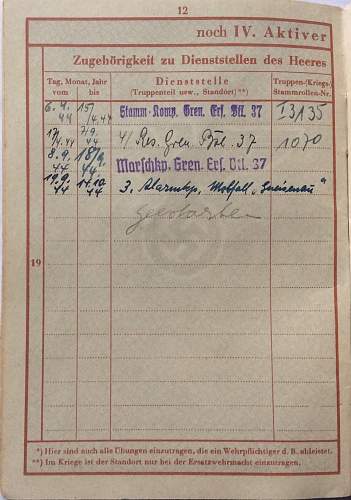 12
noch IV. Aktiver
Zugehörigkeit zu Dienststellen des Heeres
Tag, Monat, Jahr
vom
bis
Dienststelle
(Truppenteil usw., Standort) **)
Truppen-(Kriegs-)
Stammrollen-Nr.
6.4. 44 15/4.44 Stamm-Komp. Gren. Ers. Btl. 37 I 3135
17/4.44 7/9. 44 4/ Res. Gren. Btl. 37 1070
8.9. 44 18/9. 44 Marschkp. Gren. Ers. Btl. 37
19.9. 44 14.10. 44 3. Alarmkp. Mobfall „Gneisenau"
19
*) Hier sind auch alle Übungen einzutragen, die ein Wehrpflichtiger d. B. ableistet.
**) Im Kriege ist der Standort nur bei der Ersatzwehrmacht einzutragen.